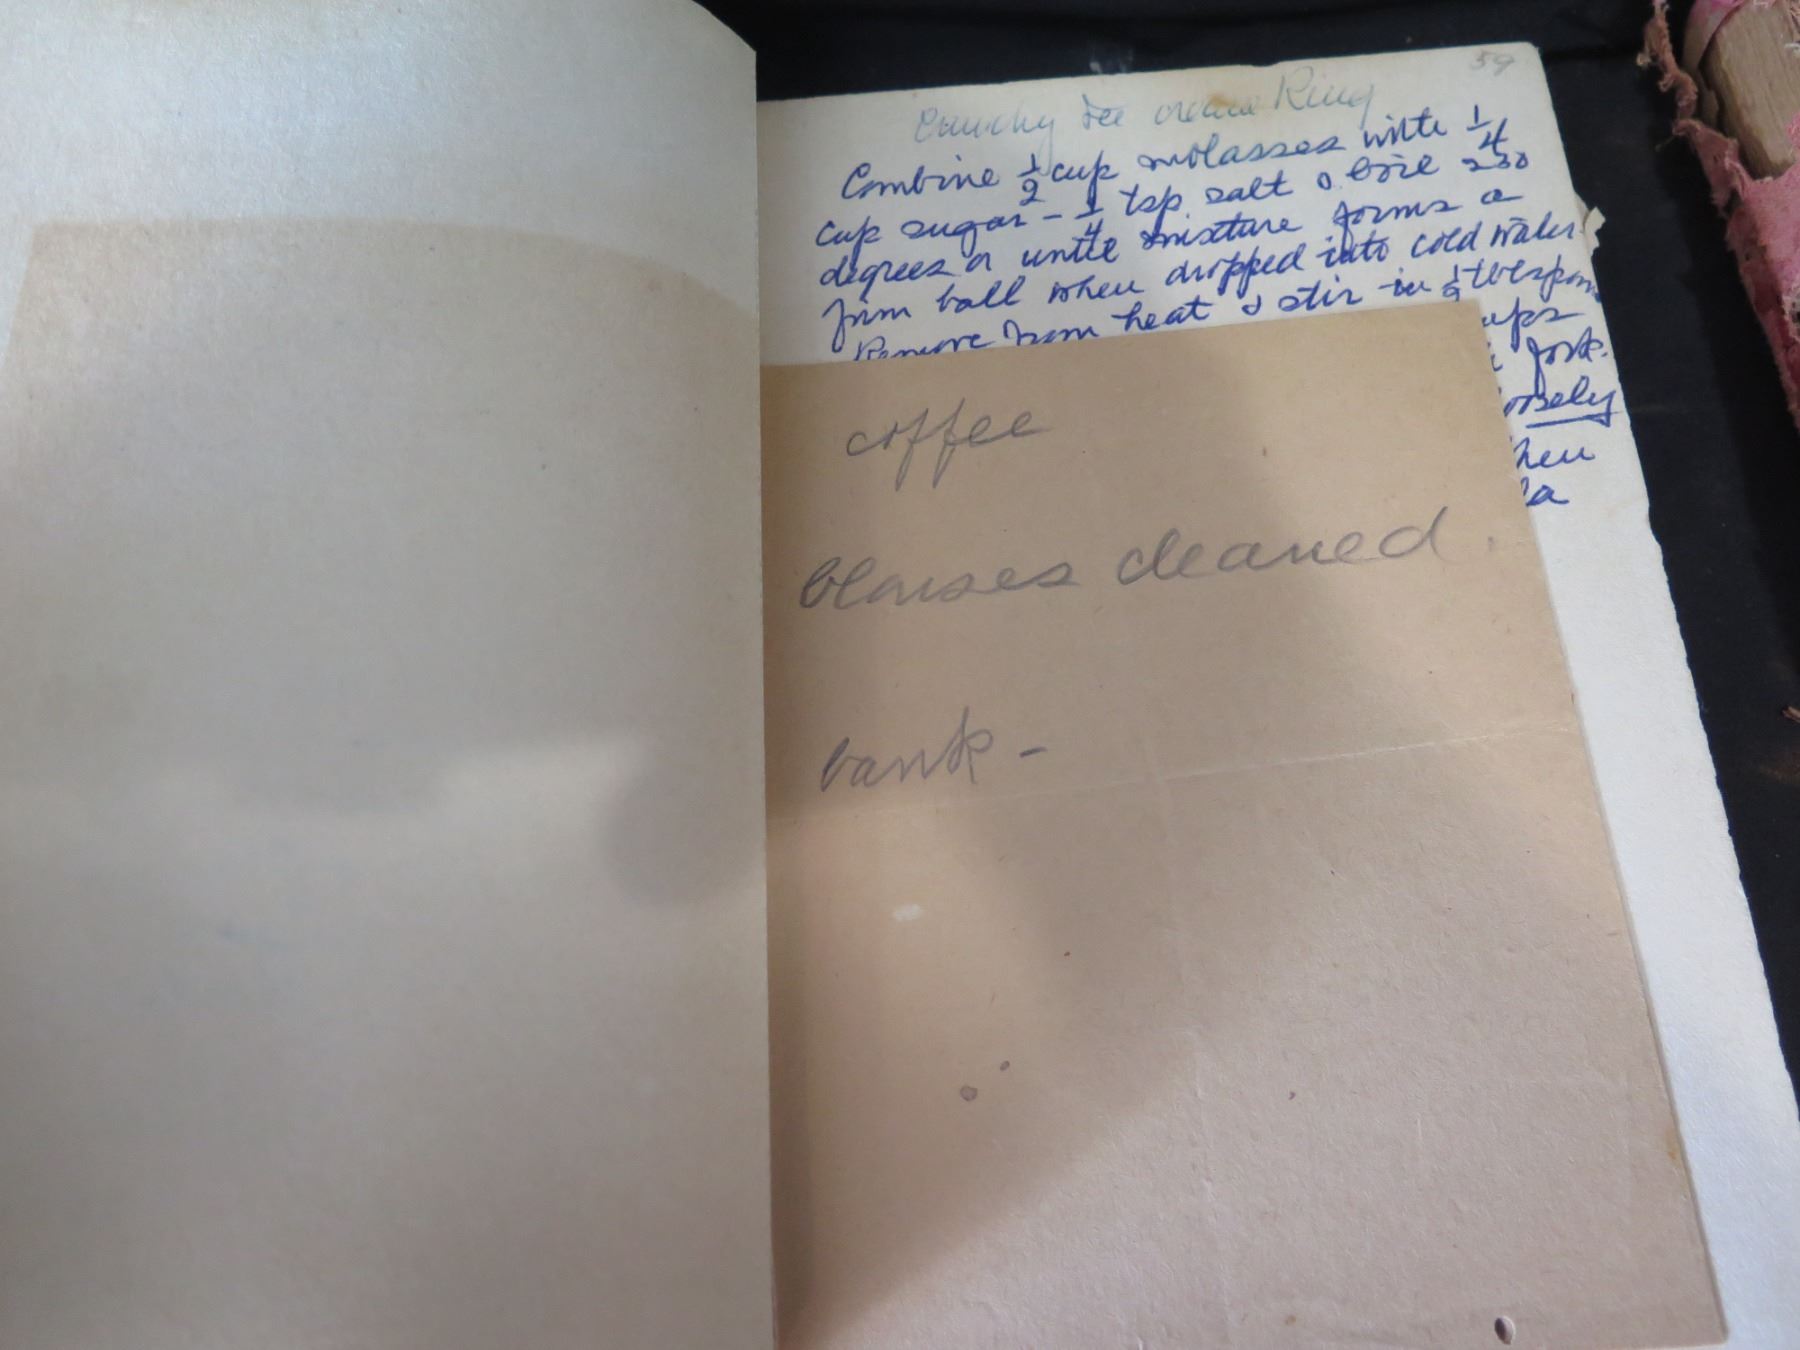 59
Crunchy Ice cream Ring
Combine 1/2 cup molasses with 1/4
cup sugar - 1/4 tsp. salt & boil 250
degrees or until mixture forms a
firm ball when dropped into cold water.
Remove from heat & stir in 1/2 tblspoon
ups
fork.
oosely
hen
la
coffee
blouses cleaned.
bank -